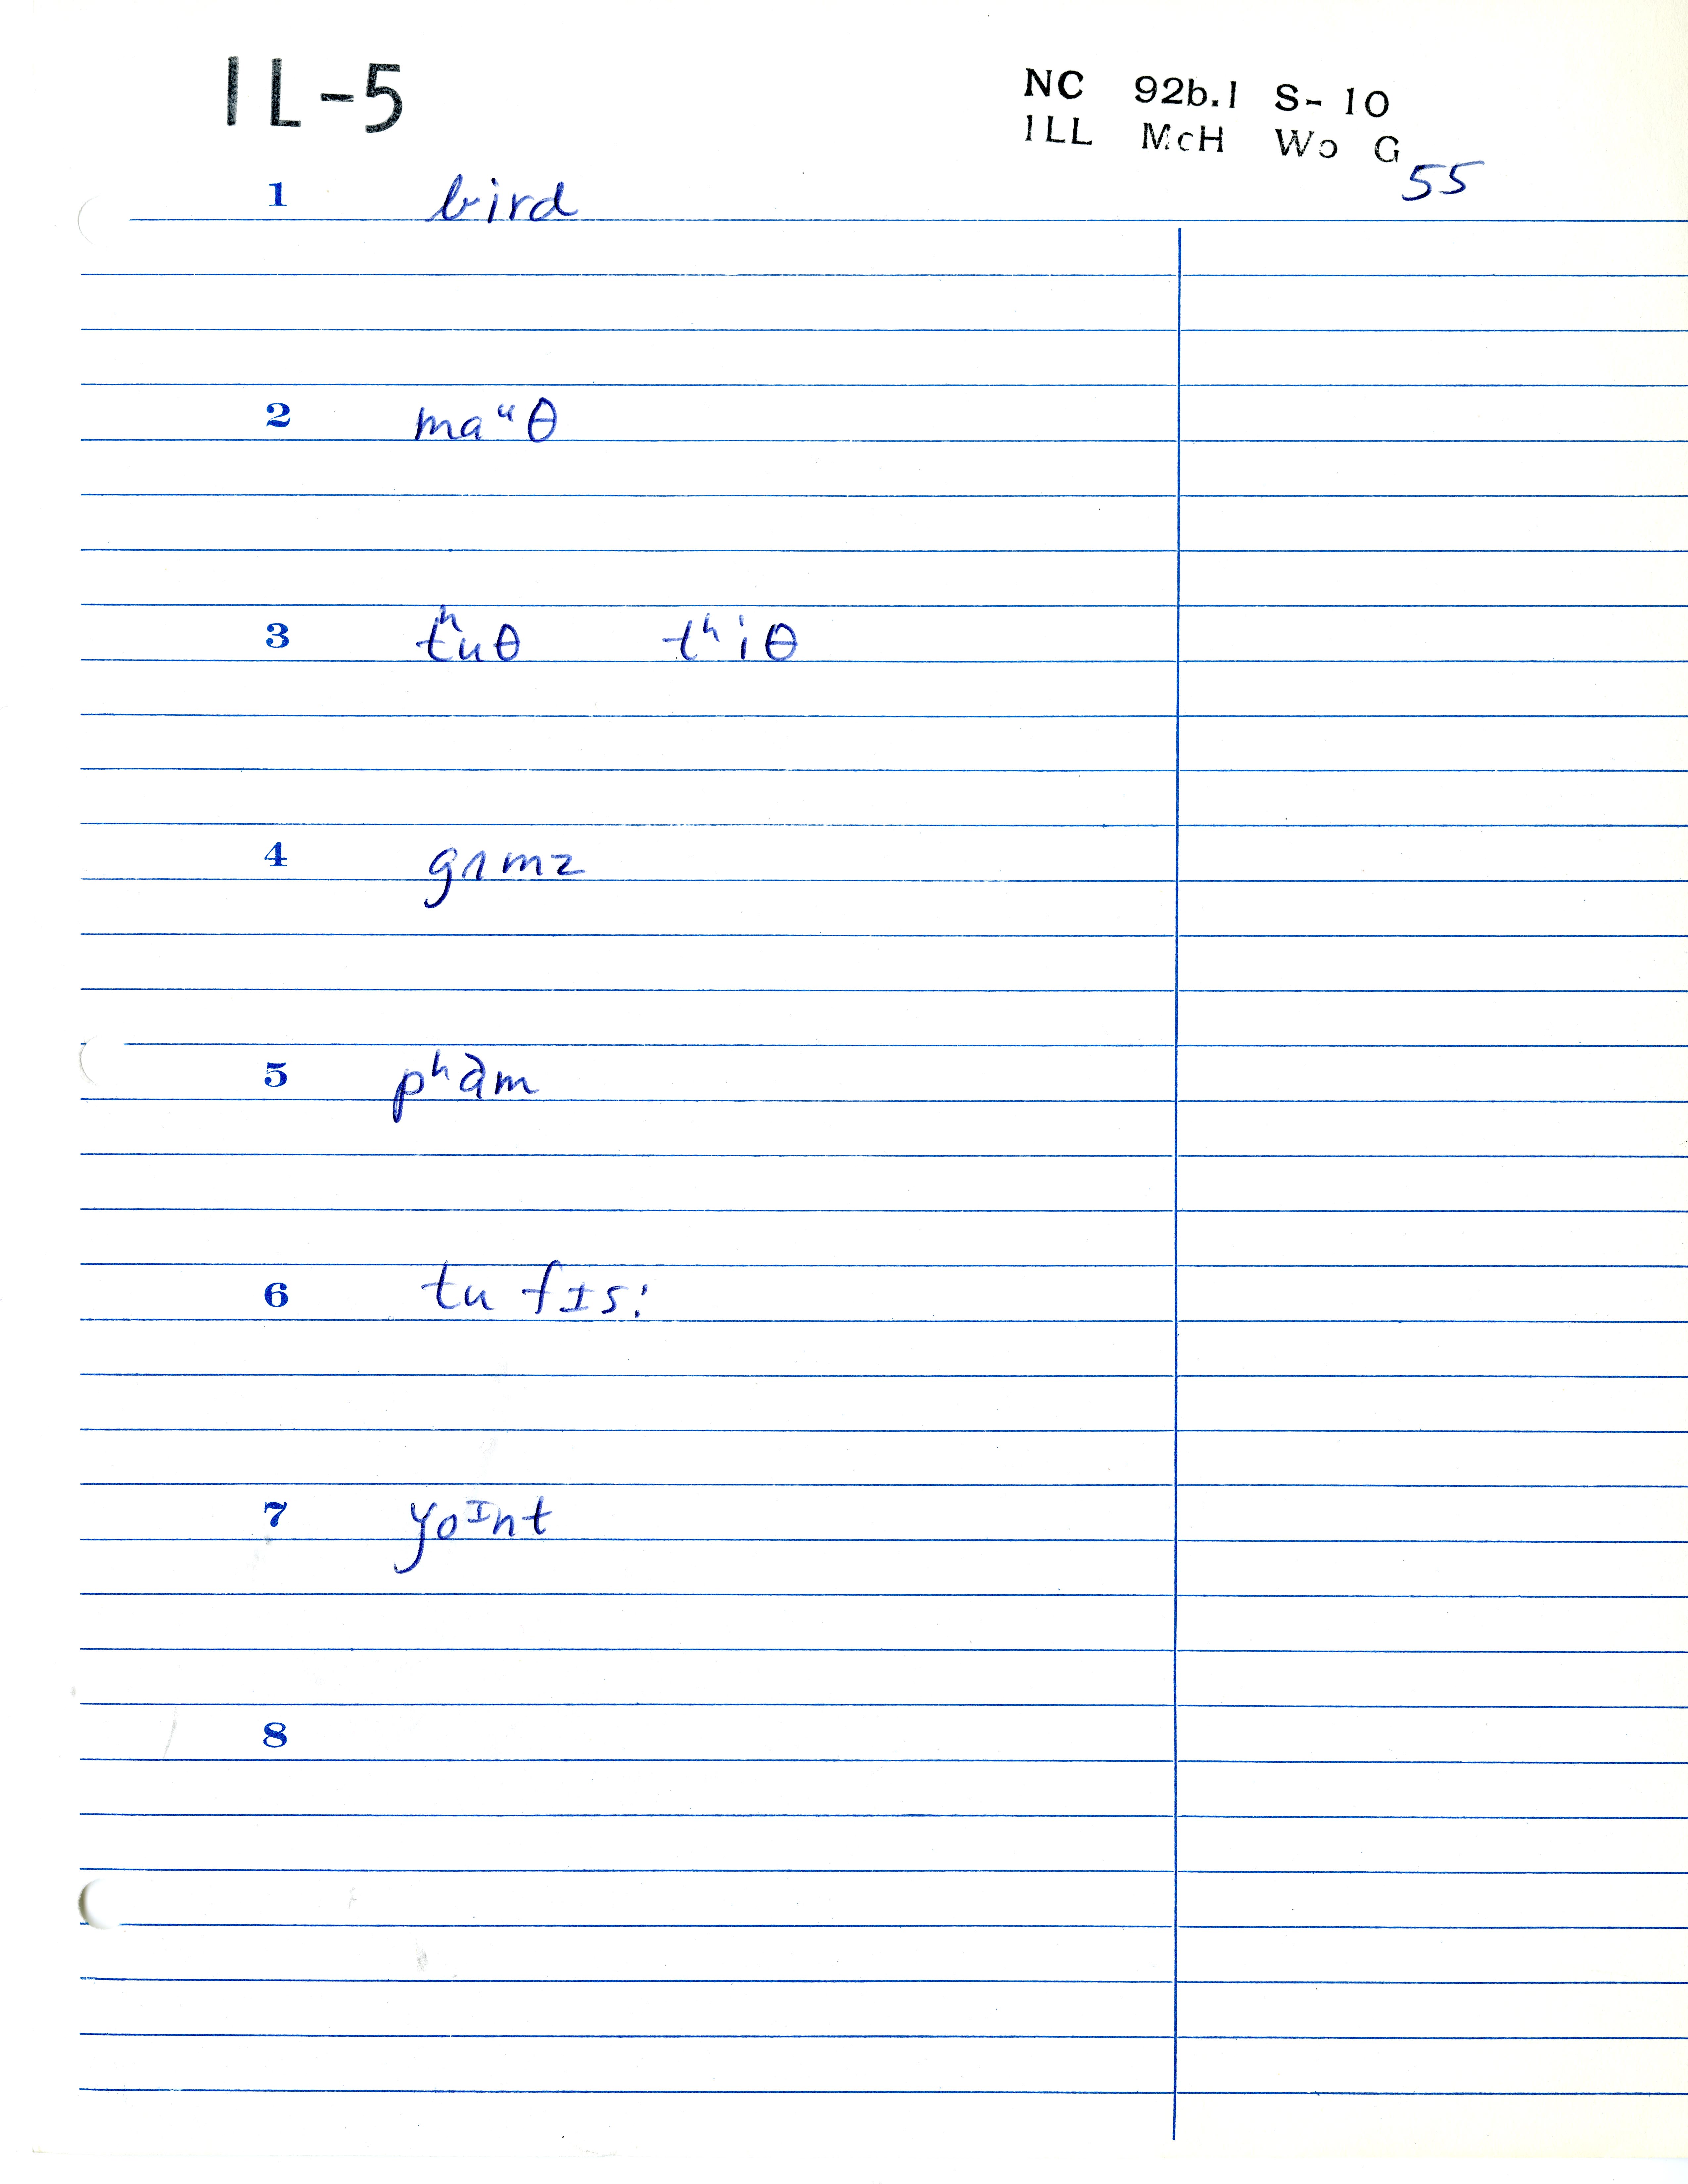 IL-5
NC 92b.1 S-10
ILL McH Wo G
55
1 bird
2 maᵘθ
3 tʰuθ tʰiθ
4 gʌmz
5 pʰam
6 tu fɪs:
7 yoᴵnt
8